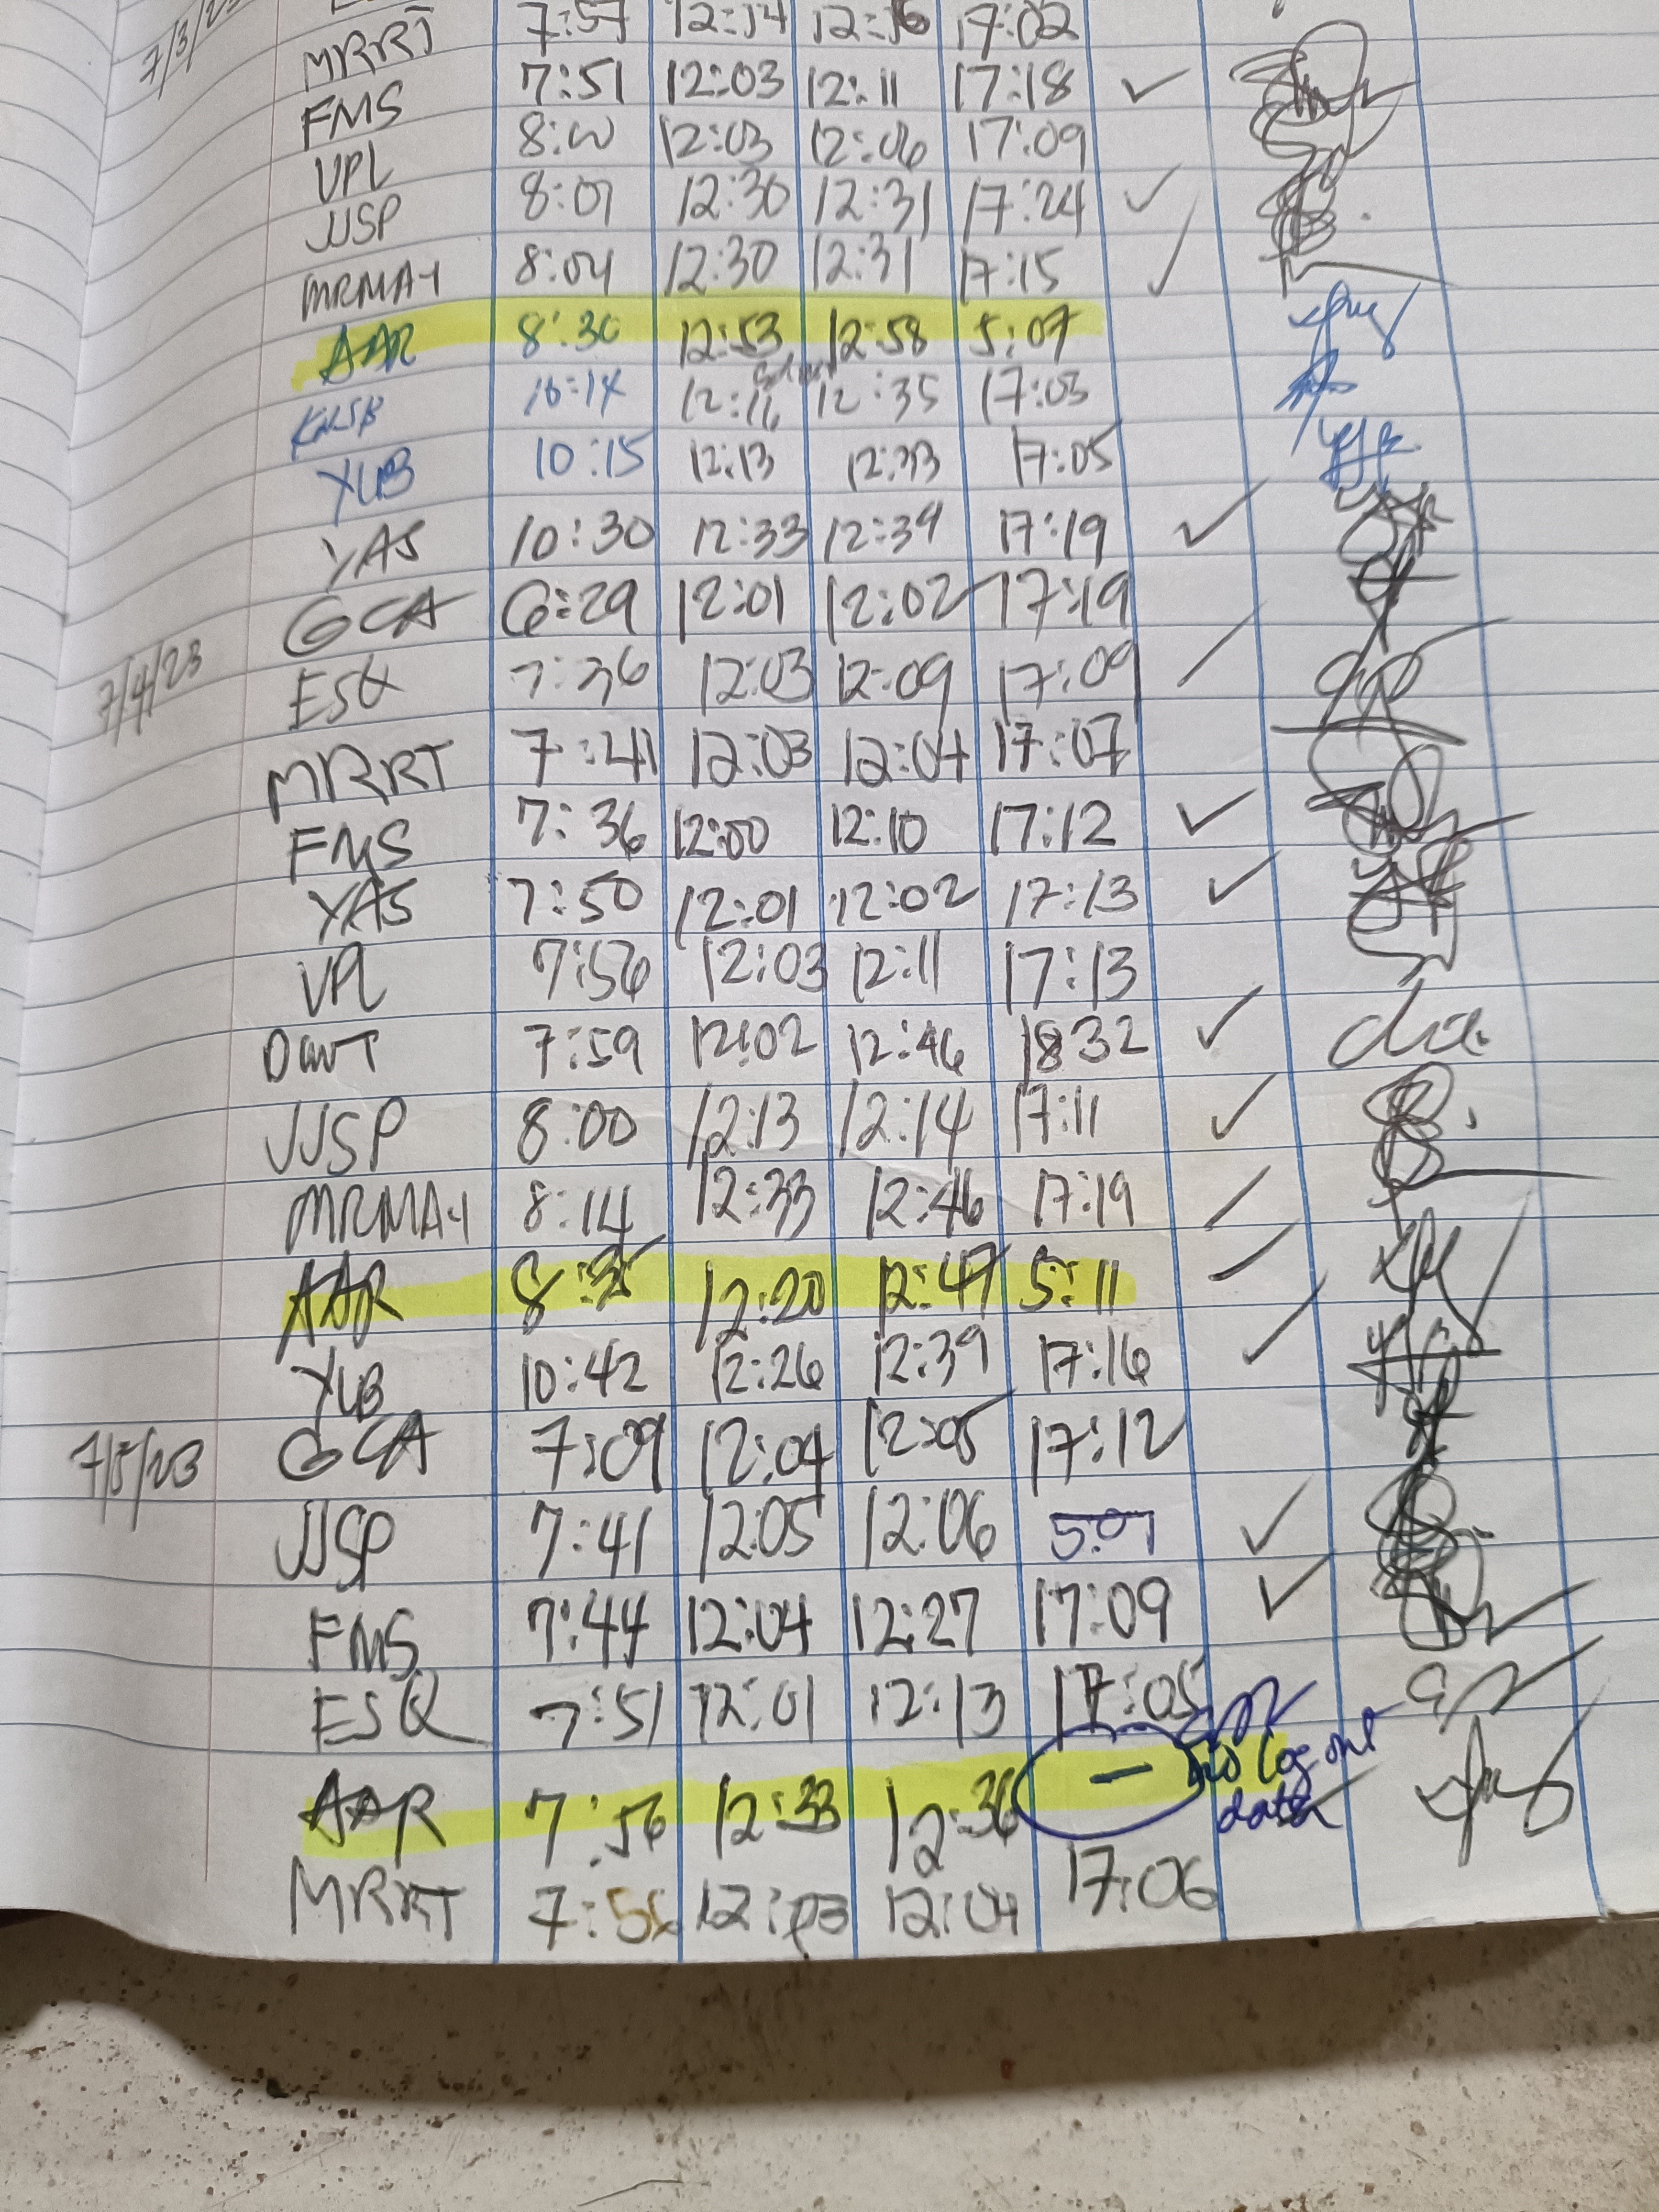 7/3/23 MRRT 7:57 12:14 12:16 17:02
FMS 7:51 12:03 12:11 17:18
VPL 8:00 12:03 12:06 17:09
JJSP 8:07 12:30 12:31 17:24
MRMA-1 8:04 12:30 12:31 17:15
AAR 8:30 12:53 12:58 5:07
10:14 12:16 12:35 17:03
YUB 10:15 12:13 12:33 17:05
YAS 10:30 12:33 12:34 17:19
GCA 6:29 12:01 12:02 17:19
7/4/23 ESQ 7:36 12:03 12:09 17:09
MRRT 7:41 12:03 12:04 17:07
FMS 7:36 12:00 12:10 17:12
YAS 7:50 12:01 12:02 17:13
VPL 7:56 12:03 12:11 17:13
7:59 12:02 12:46 18:32
JJSP 8:00 12:13 12:14 17:11
MRMA-1 8:14 12:33 12:46 17:19
AAR 8:35 12:20 12:47 5:11
YUB 10:42 12:26 12:39 17:16
7/5/23 GCA 7:09 12:04 12:05 17:12
JJSP 7:41 12:05 12:06 5:07
FMS 7:44 12:04 12:27 17:09
ESQ 7:51 12:01 12:13 17:05
AAR 7:56 12:33 12:36 — No log out
data
MRRT 12:03 12:04 17:06